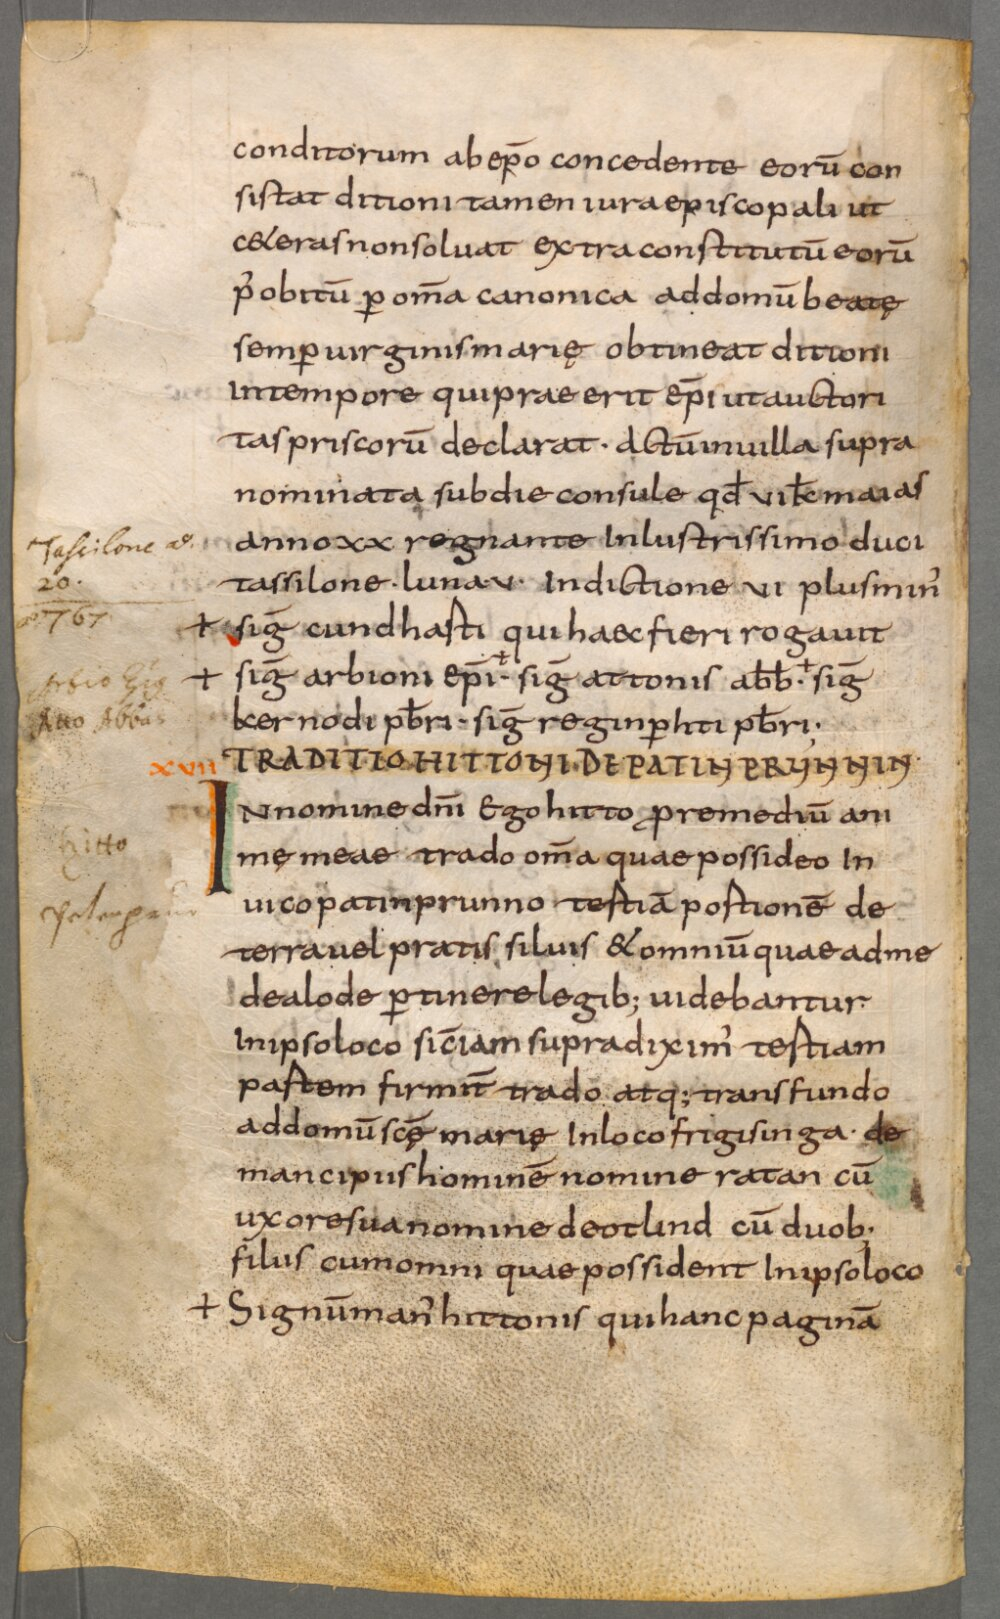 conditorum ab ep̄o concedente eorū con
sistat ditioni tamen iura episcopali ut
ce&eras non soluat extra constitutū eorū
p᾽ obitū ꝑ om̄a canonica ad domū beatę
semꝑ uirginis marię obtineat ditioni
In tempore qui prae erit ep̄i ut auctori
tas priscorū declarat · actū in uilla supra
nominata sub die consule qđ vi kł maias
anno xx regnante Inlustrissimo duci
tassilone · luna · v · Indictione vi plus min᾽
+ siḡ cundhasti qui haec fieri rogauit
+ siḡ arbioni ep̄i · + siḡ attonis ab̄b · + siḡ
kernodi pb̄ri · siḡ reginꝑhti pb̄ri ·
xvii TRADITIO HITTONI · DE PATINPRUNNIN ·
IN nomine dn̄i Ego hitto ꝓ remediū ani
mę meae trado om̄a quae possideo In
uico patinprunno tertiā portionē de
terra uel pratis siluis & omniū quae ad me
de alode ꝑtinere legib; uidebantur
In ipso loco sic̄ iam supra dixim᾽ tertiam
partem firmit̄ trado atq; transfundo
ad domū sc̄ę marię In loco frigisinga · de
mancipiis hominē nomine ratan cū
uxore sua nomine deotlind cū duob;
filiis cum omni quae possident In ipso loco
+ Signū man᾽ hittonis qui hanc paginā
Tassilone aº.
20.
aº 767
Arbio Ep̄s
Atto Abbas
hitto